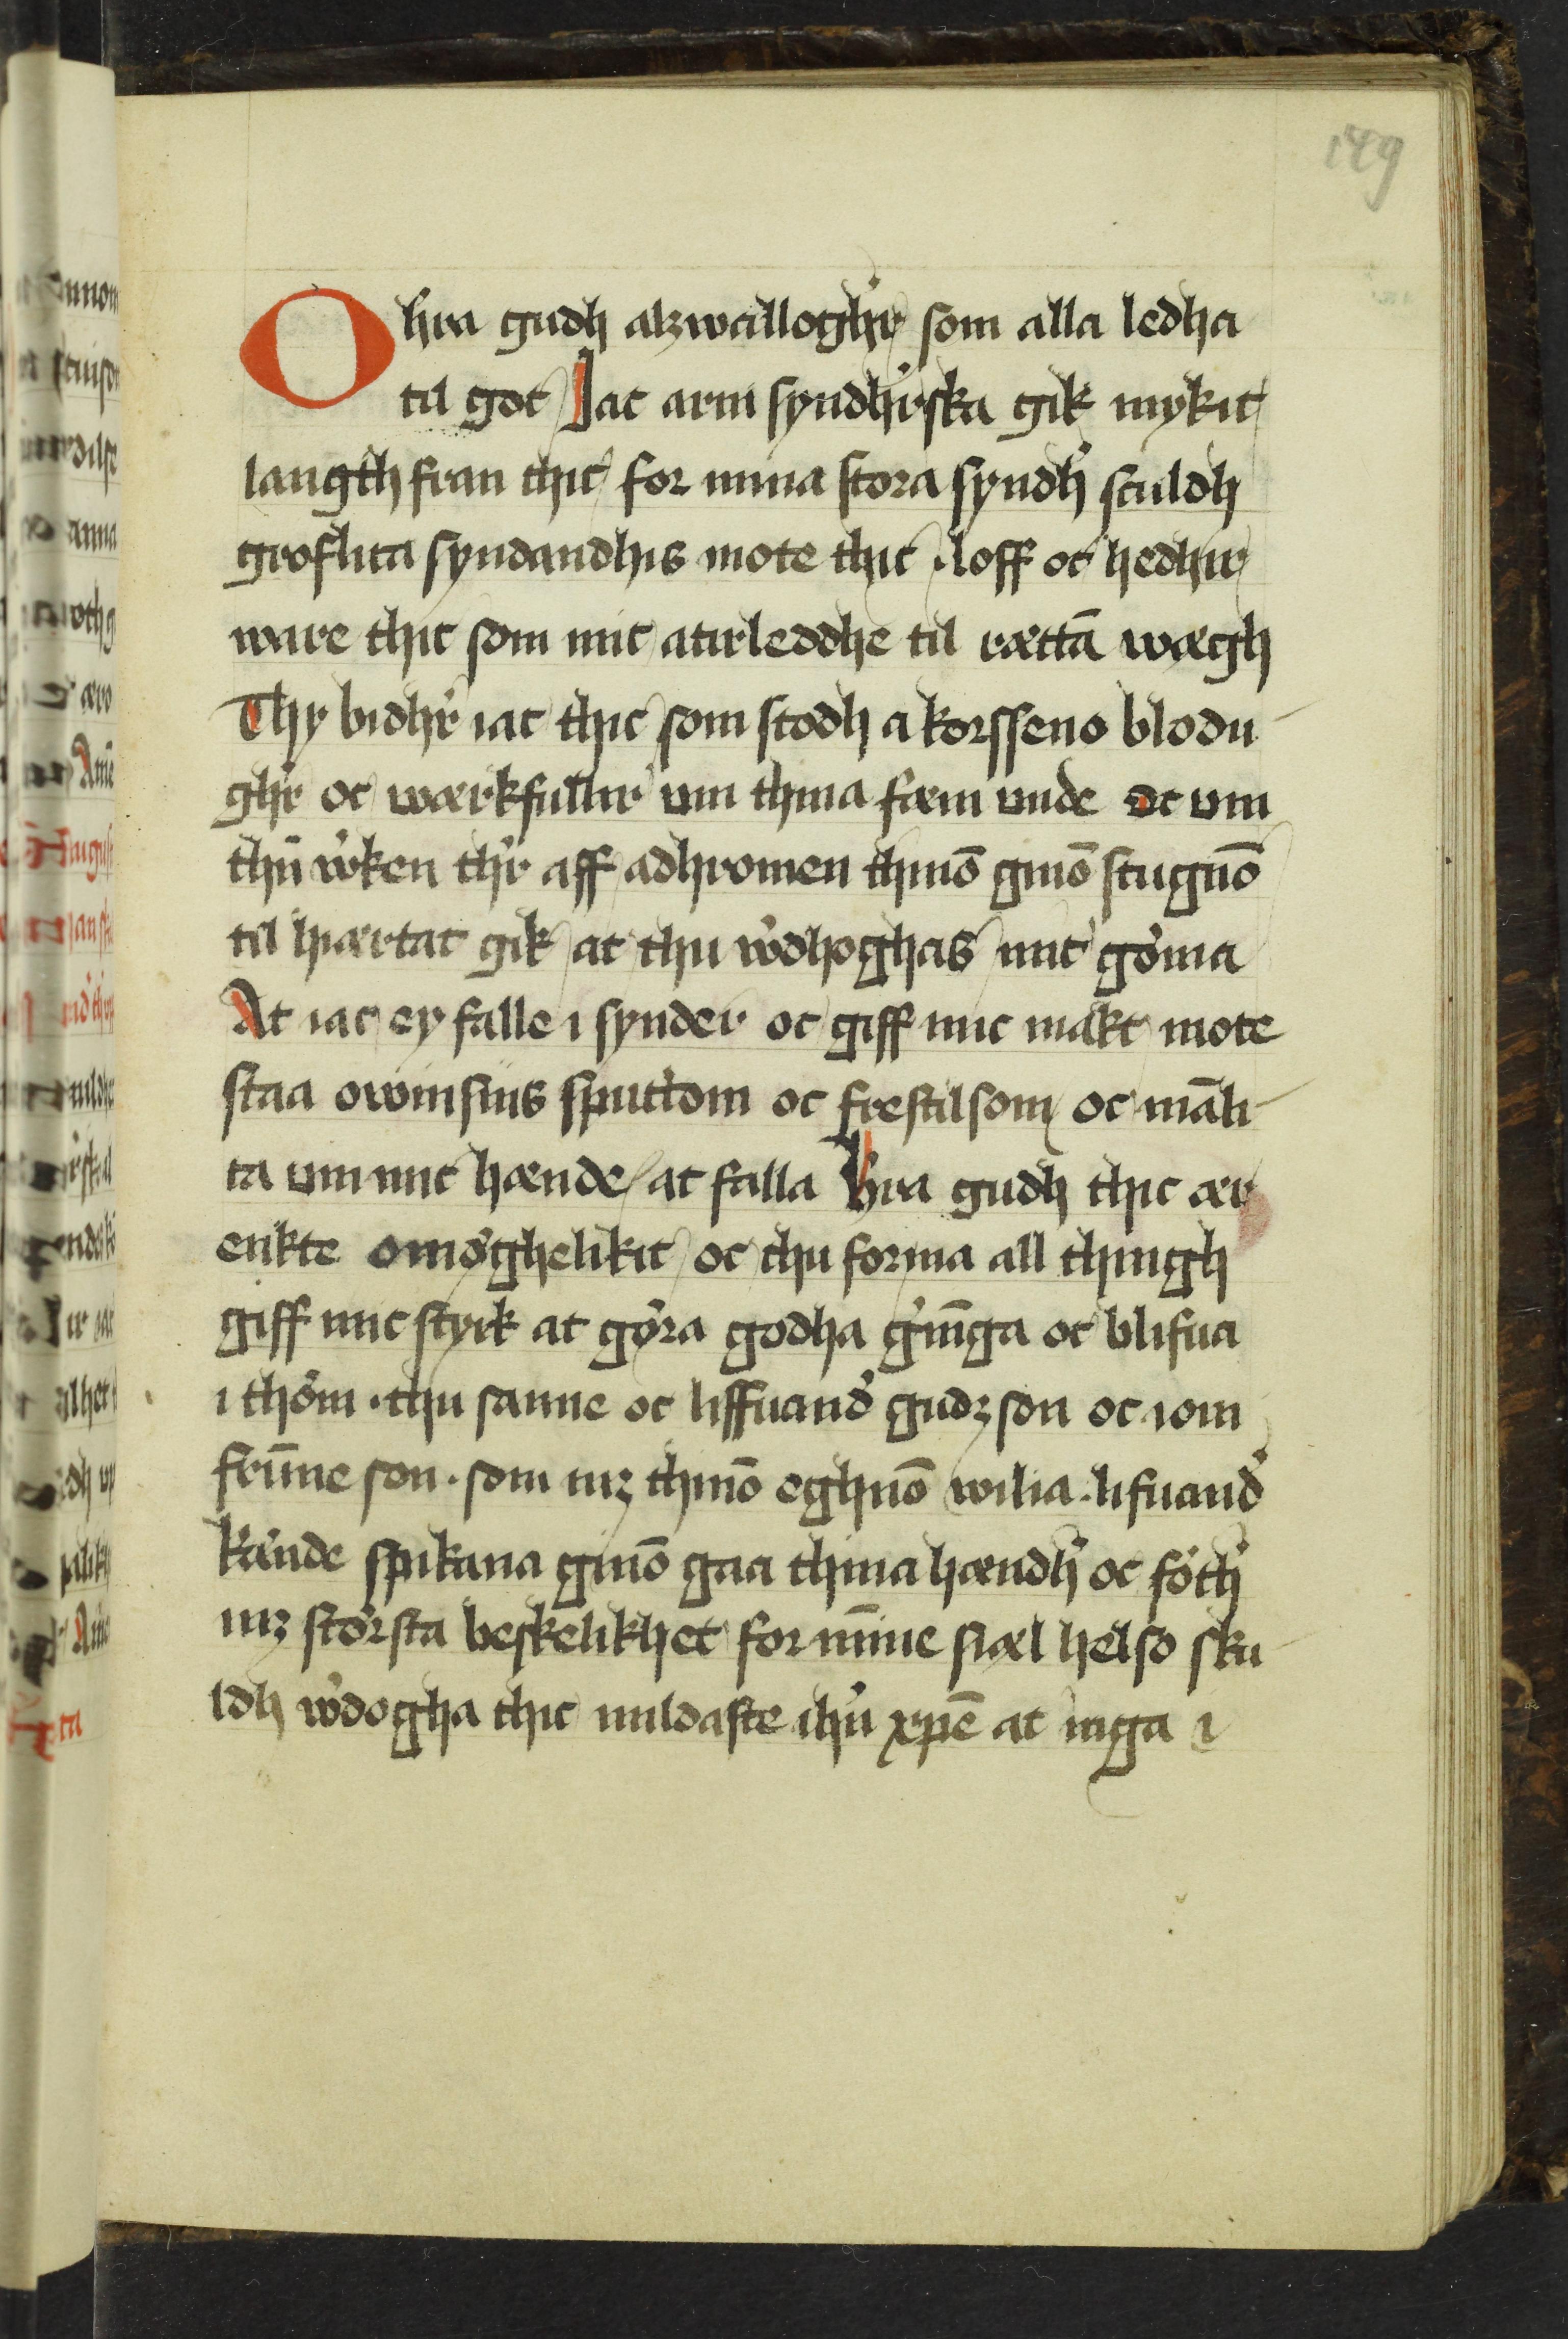 149
O h̉ra gudh alzwalloghr̉ som alla ledha
til got Jac arm syndhr̉ska gik mykit
langth fran thic for mina stora syndh̉ sculdh
groflica syndandhis mote thic ·loff oc hedhir
ware thic som mic atirleddhe til rættā wægh
Thy bidhr̉ iac thic som stodh a korsseno blodu
ghr̉ oc wærkfullir vm thina fæm vnde oc vm
thn̄ w̉ken thr̉ aff adhromen thinō ginō stugnō
til hiærtat gik at thu w̉dhoghas mic gö̉ma
At iac ey falle i synder oc giff mic makt mote
staa owinsins spuctom oc frestilsom oc māli
ca vm mic hænde at falla Hr̉a gudh thic ær
enkte omöghelikit oc thu forma all thingh
giff mic styrk at göra godha gi̇̉ninga oc blifua
i thöm · thu sanne oc liffuand̉ gudz son oc iom
frūne son · som mz thinō eghnō wilia · lifuand̉
kände spikana ginō gaa thina hændh̉ oc föth̉
mz största beskelikhet for mīne siæl helso sku
ldh w̉dogha thic mildaste ihū xp̄e at inga i